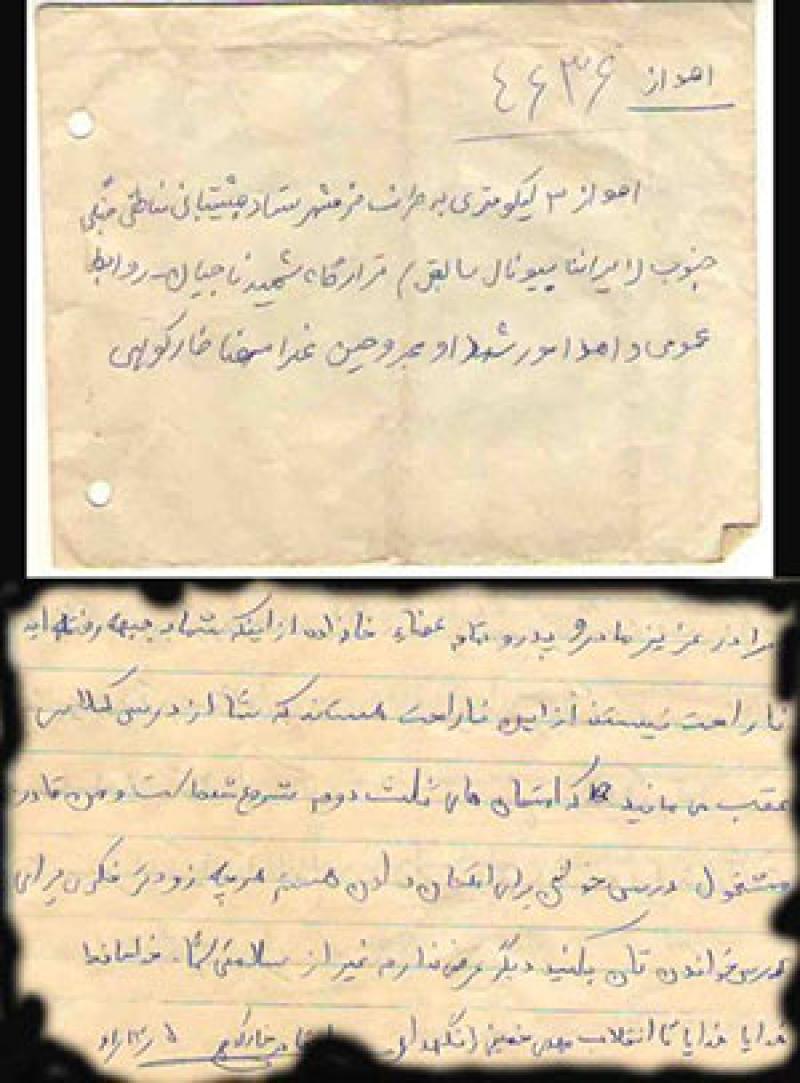 اهواز
۴۶۳۶
اهواز ۳ کیلومتری به طرف خرمشهر ستاد پشتیبانی مناطق جنگی
جنوب (ایرانا سابق) قرارگاه شهید روابط
عمومی واحد امور شهدا و مجروحین غلامرضا خارکوهی
برادر عزیز مادر و پدر و تمام عضاء خانواده از اینکه شما به جبهه رفته اید
ناراحت نیستند از این ناراحت هستند که شما از درس کلاس
عقب می مانید که امتحان های ثلث دوم شروع شده است و من قادر
مشغول درس خوانی برای امتحان دادن هستم هر چه زودتر فکری برای
درس خواندن تان بکنید دیگر عرضی ندارم غیر از سلامتی شما. خداحافظ
خدایا خدایا تا انقلاب مهدی خمینی را نگهدار خارکوهی